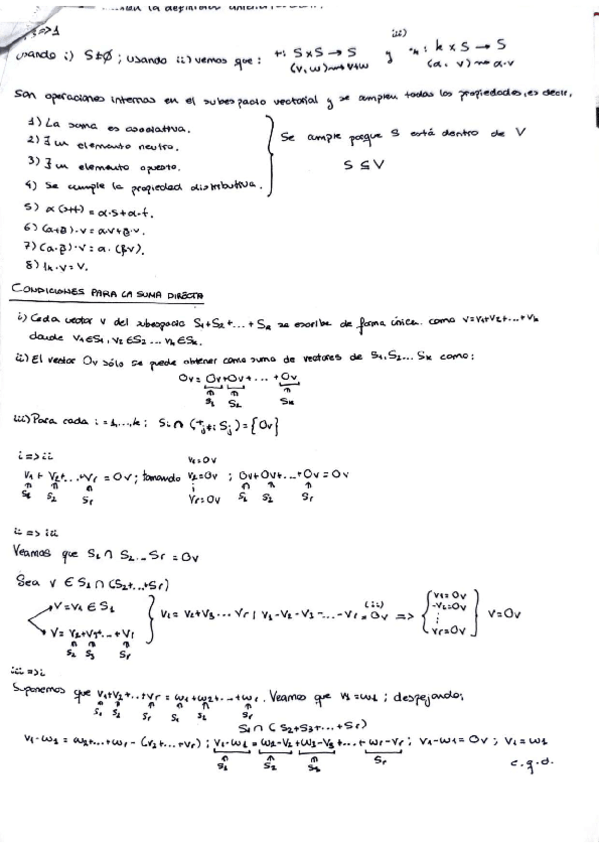 la definición
3 => 1
Usando i) S≠∅; usando ii) vemos que: +: S x S → S y iii) "·": k x S → S
(v, w) ⟿ v+w (α, v) ⟿ α·v
Son operaciones internas en el subespacio vectorial y se cumplen todas las propiedades, es decir,
1) La suma es asociativa.
2) ∃ un elemento neutro.
3) ∃ un elemento opuesto.
4) Se cumple la propiedad distributiva.
Se cumple porque S está dentro de V
S ⊆ V
5) α(s+t) = α·s+α·t.
6) (α+β)·v = αv+β·v.
7) (α·β)·v = α·(βv).
8) 1k·v = v.
CONDICIONES PARA LA SUMA DIRECTA
i) Cada vector v del subespacio S1+S2+...+Sk se escribe de forma única como v=v1+v2+...+vk
donde v1∈S1, v2∈S2... vk∈Sk.
ii) El vector 0v sólo se puede obtener como suma de vectores de S1, S2... Sk como:
0v = 0v+0v+...+0v
S1 S2 Sk
iii) Para cada i=1,...,k; Si ∩ (+j≠i Sj) = {0v}
i => ii
v1 + v2+...vr = 0v; tomando v1=0v v2=0v ⋮ vr=0v ; 0v+0v+...+0v = 0v
S1 S2 Sr S1 S2 Sr
ii => iii
Veamos que S1 ∩ S2...Sr = 0v
Sea v ∈ S1 ∩ (S2+...+Sr)
v = v1 ∈ S1
v = v2+v3+...+vr
S2 S3 Sr
v1 = v2+v3...vr | v1-v2-v3-...-vr = 0v (ii) =>
v1=0v
-v2=0v
⋮
vr=0v
v=0v
iii => i
Suponemos que v1+v2+...+vr = w1+w2+...+wr. Veamos que v1=w1; despejando;
S1 S2 Sr S1 S2 Sr
S1 ∩ (S2+S3+...+Sr)
v1-w1 = w2+...+wr - (v2+...+vr); v1-w1 = w2-v2+w3-v3+...+wr-vr; v1-w1=0v; v1=w1
S1 S2 S3 Sr
c.q.d.